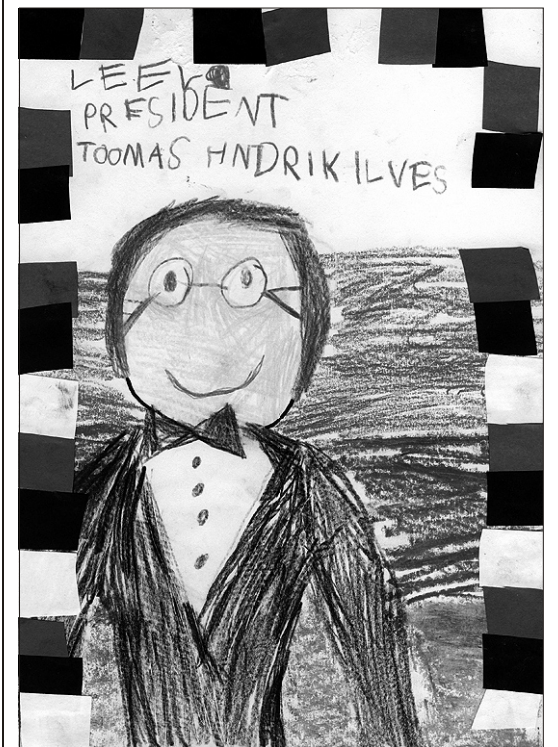 LEEV
PRESIDENT
TOOMAS HNDRIK ILVES